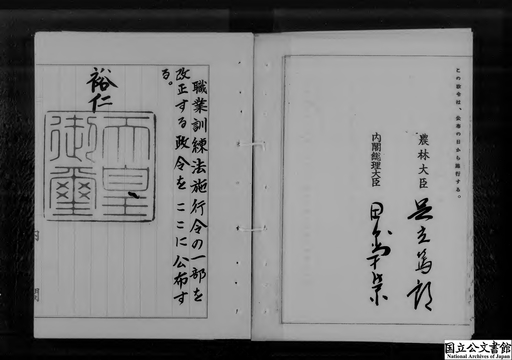 この政令は、公布の日から施行する。
農林大臣 足立篤郎
内閣総理大臣 田中角榮
職業訓練法施行令の一部を
改正する政令をここに公布す
る。
裕仁
天皇
御璽
国立公文書館
National Archives of Japan